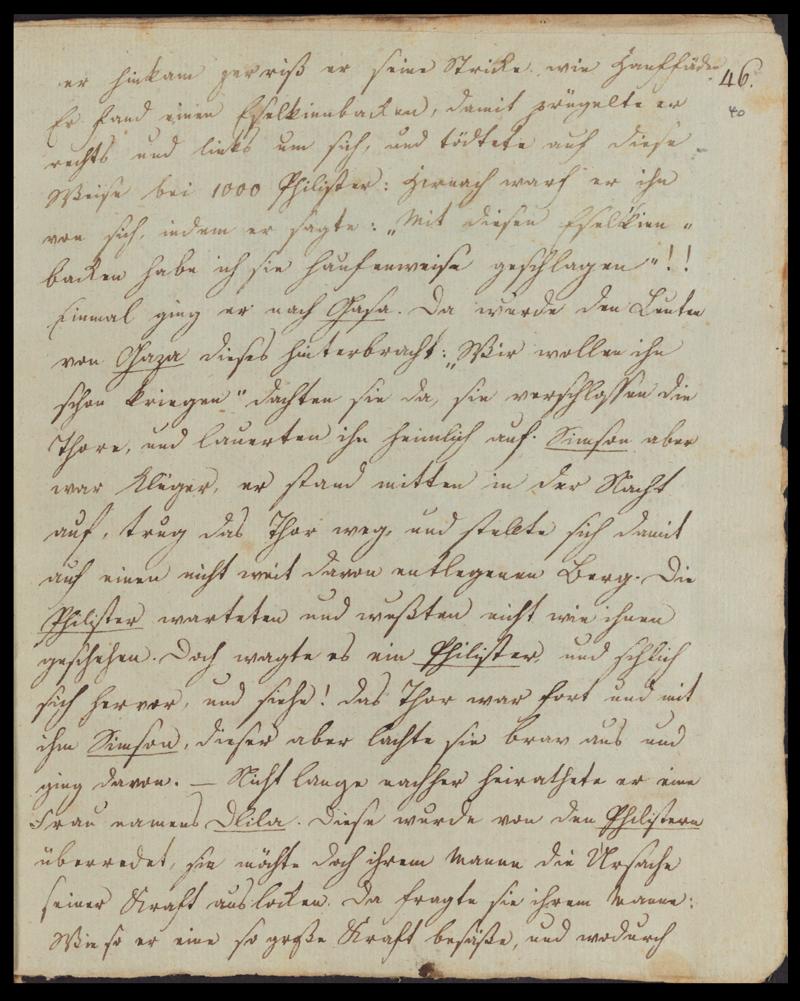 46.
40
er hinkam zerriß er seine Stricke wie Hanffäden
Er fand einen Eselkienbacken, damit prügelte er
rechts und links um sich, und tödtete auf diese
Weise bei 1000 Philister: Hernach warf er ihn
von sich, indem er sagte: „Mit diesen Eselkien„
backen habe ich sie haufenweise geschlagen"!!
Einmal ging er nach Gasa. Da wurde den Leuten
von Gaza dieses hinterbracht: „Wir wollen ihn
schon kriegen" dachten sie da, sie verschlossen die
Thore, und lauerten ihn heimlich auf. Simson aber
war klüger, er stand mitten in der Nacht
auf, trug das Thor weg, und stellte sich damit
auf einen nicht weit davon entlegenen Berg. Die
Philister warteten und wußten nicht wie ihnen
geschehen. Doch wagte es ein Philister, und schlich
sich hervor, und siehe! das Thor war fort und mit
ihm Simson, dieser aber lachte sie brav aus und
ging davon. — Nicht lange nachher heirathete er eine
Frau namens Dlila. Diese wurde von den Philistern
überredet, sie möchte doch ihrem Manne die Ursache
seiner Kraft auslocken. Da fragte sie ihrem Manne:
Wie so er eine so große Kraft besäße, und wodurch